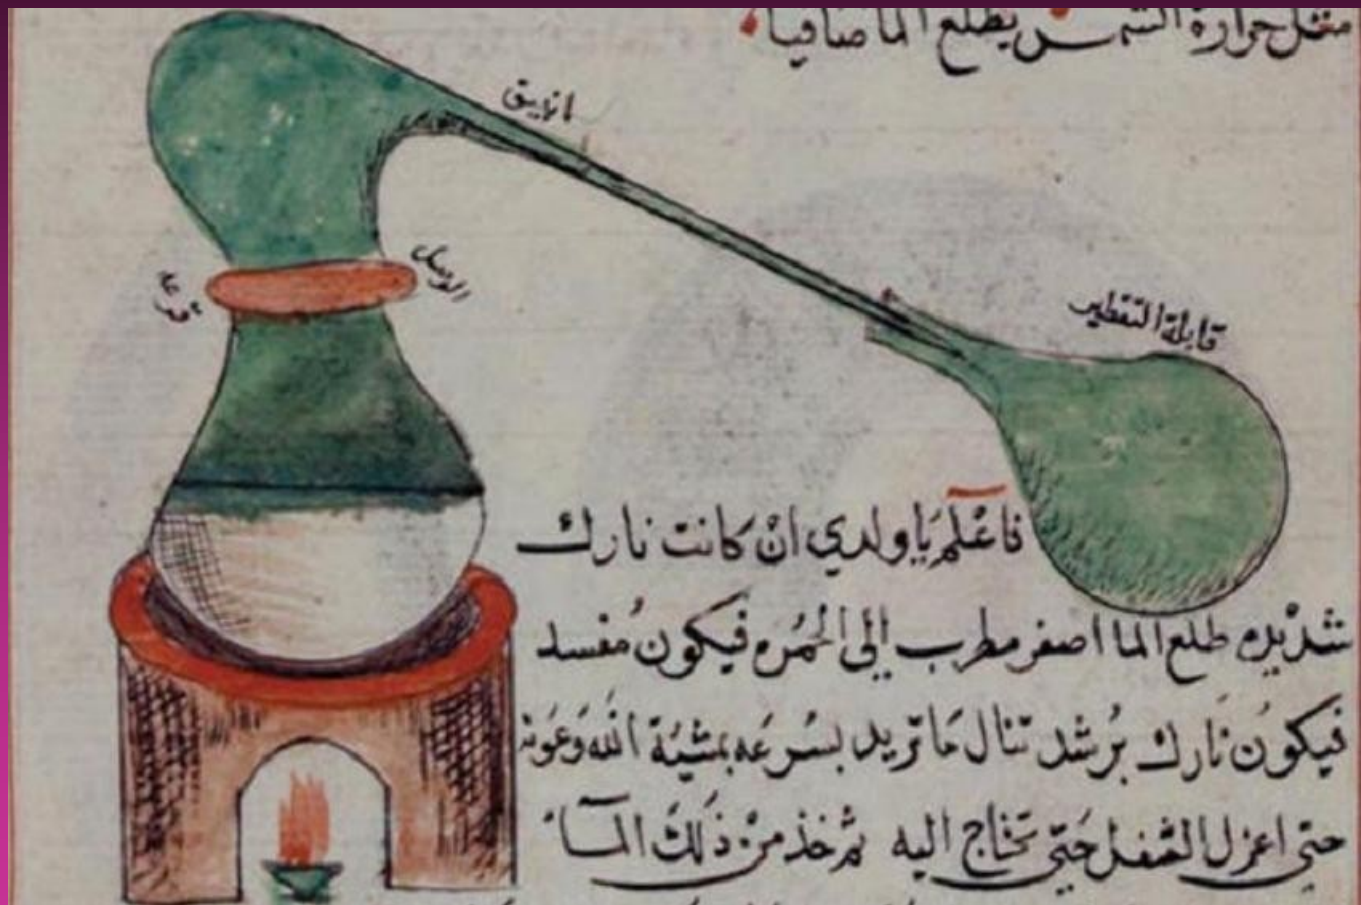 مثل حرارة الشمس يطلع الما صافيا
انبيق
الوصل
قرعة
قابلة التقطير
فاعْلم يَا ولدي انْ كانت نارك
شديده طلع الما اصفر مطرب الى الحُمره فيكون مُفسد
فيكون نَارك بُرشد تنال مَا تريد بسُرعَه بمشيّة الله وَعَونه
حتى اعزل الثفل حَتى تحتاج اليه ثم خذ من ذَلكَ المآء